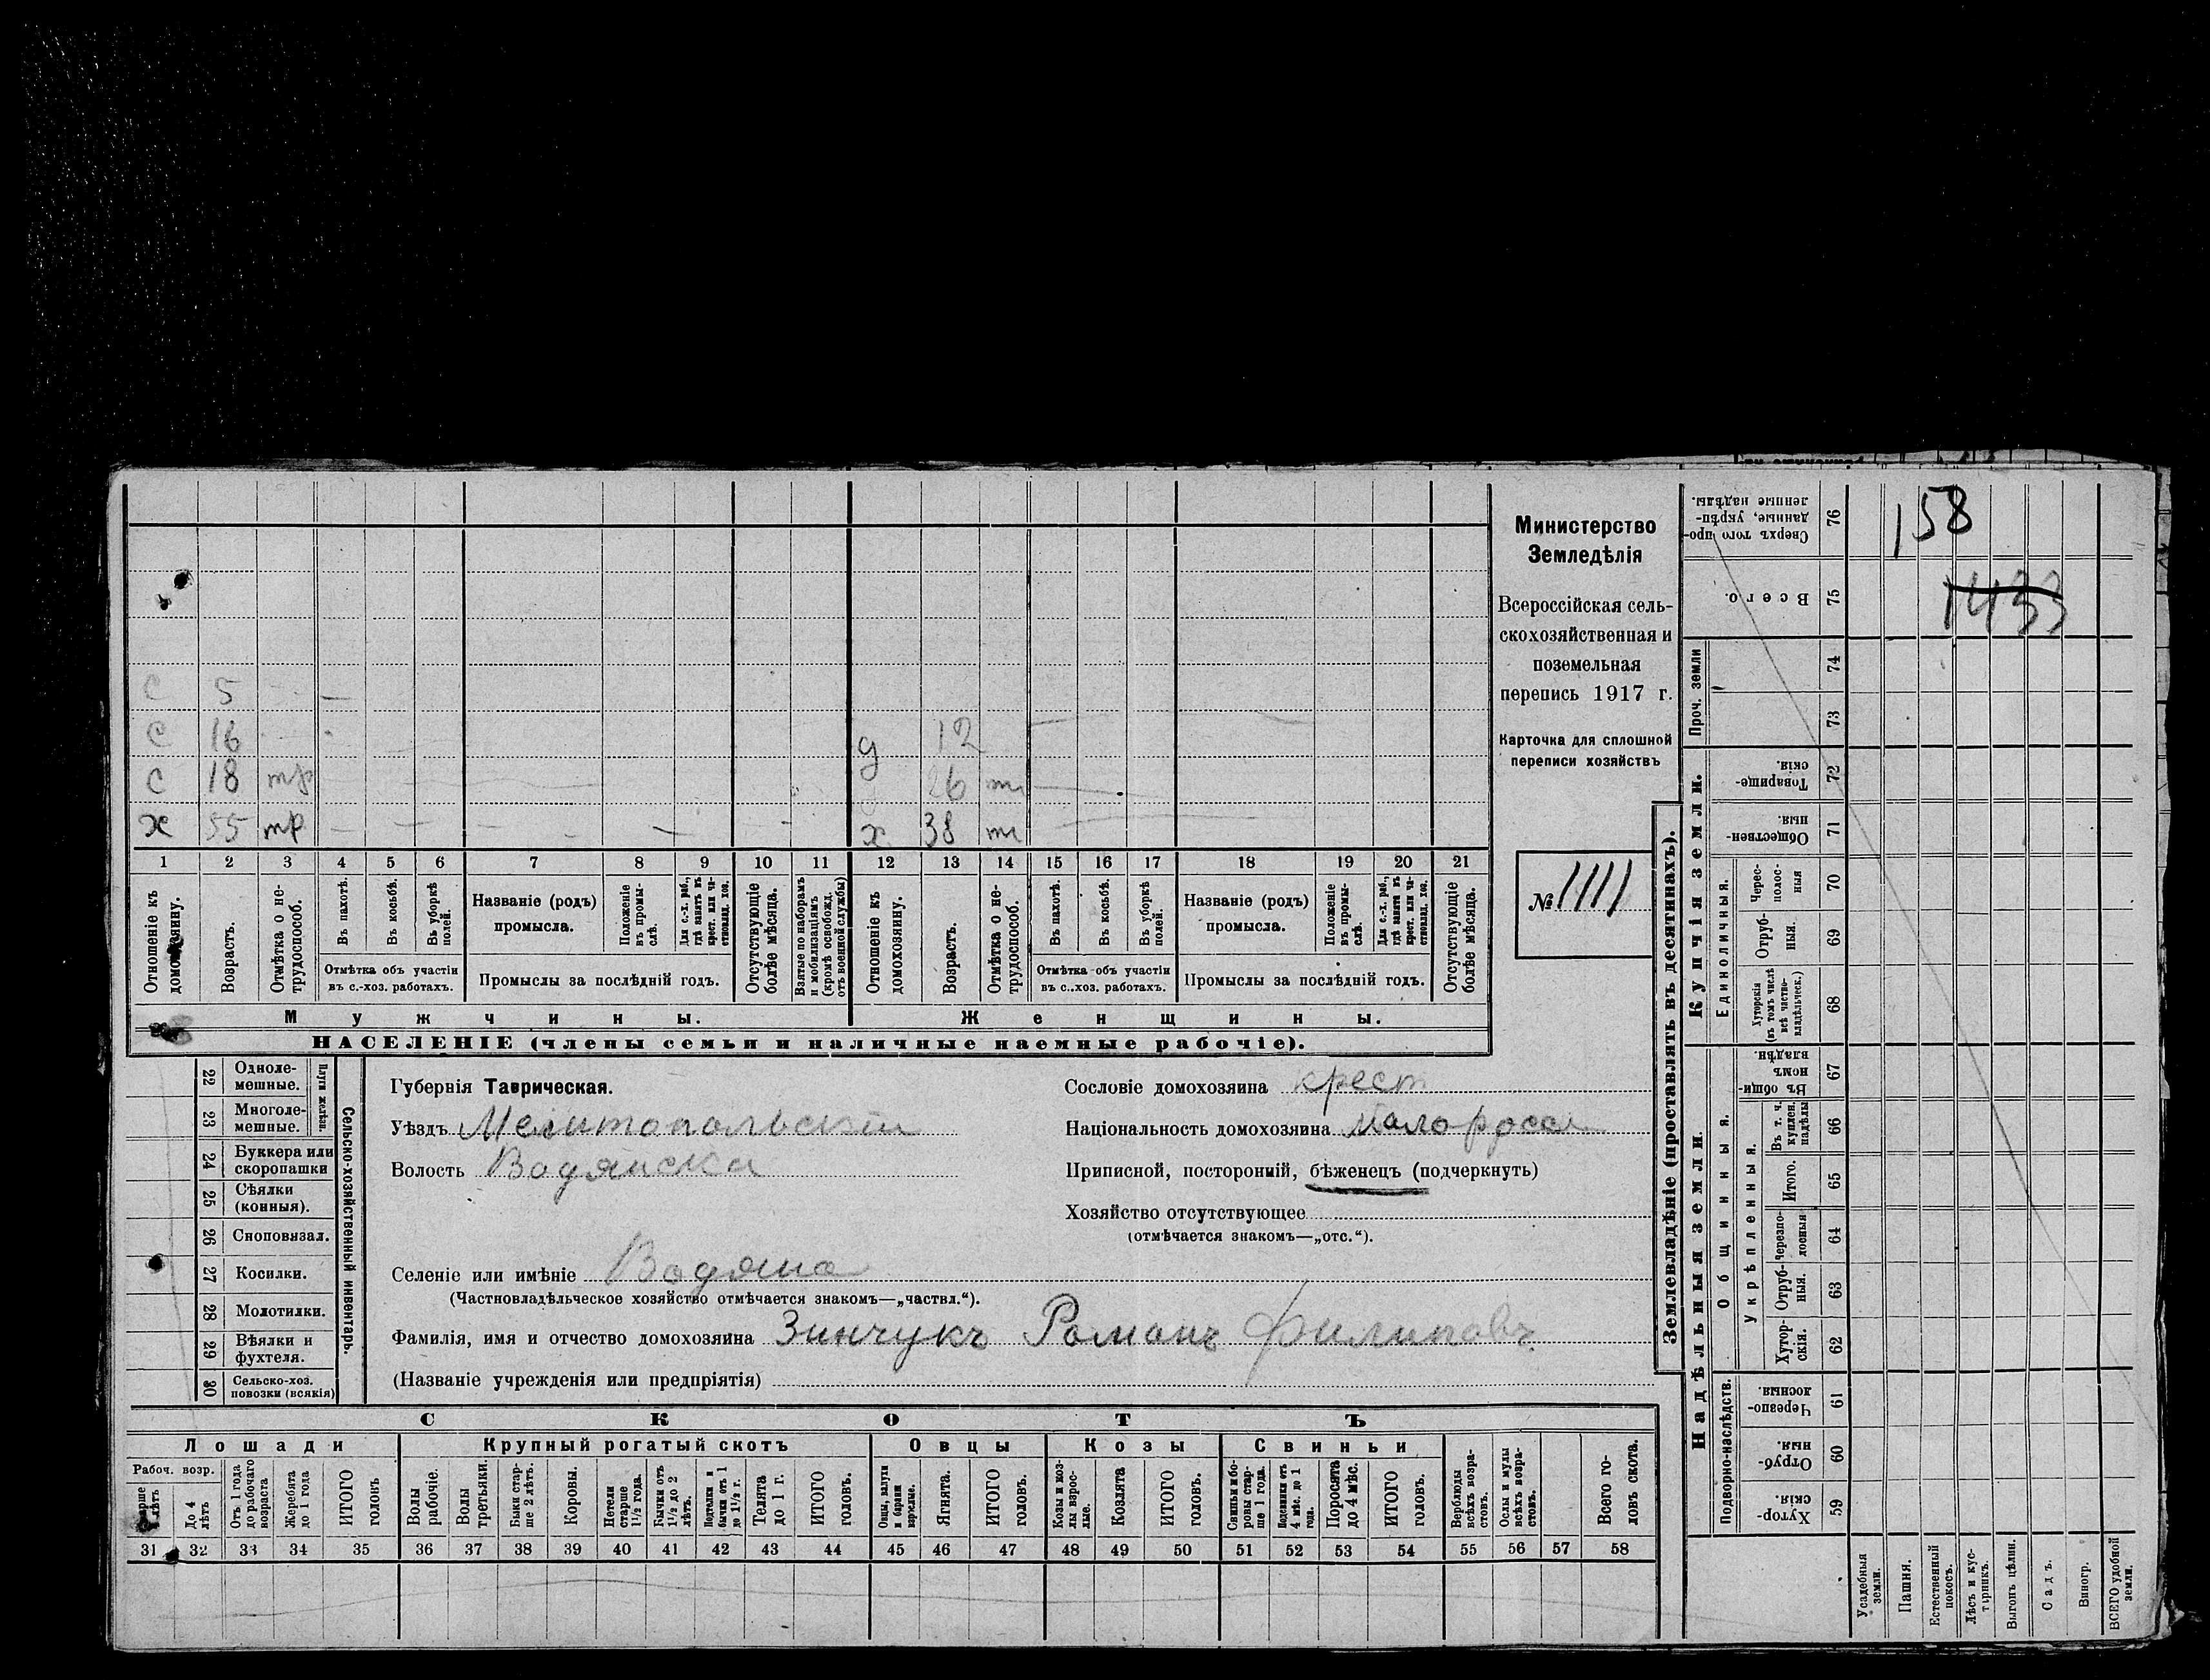 158
1433
Министерство
Земледѣлія
Всероссійская сель-
скохозяйственная и
поземельная
перепись 1917 г.
Карточка для сплошной
переписи хозяйствъ
№ 1111
с 5
с 16 д 12
с 18 тр 26
х 55 тр х 38
1 2 3 4 5 6 7 8 9 10 11 12 13 14 15 16 17 18 19 20 21
Отношеніе къ домохозяину.
Возрастъ.
Отмѣтка о не-трудоспособ.
Въ пахотѣ.
Въ косьбѣ.
Въ уборкѣ полей.
Отмѣтка объ участіи
въ с.-хоз. работахъ.
Названіе (родъ)
промысла.
Положеніе въ промы-слѣ.
Для с.-х. раб., гдѣ занятъ въ крест. или ча-стновлад. хоз.
Промыслы за послѣдній годъ.
Отсутствующіе болѣе мѣсяца.
Взятые по наборамъ и мобилизаціямъ (кромѣ освобожд. отъ военной службы)
Отношеніе къ домохозяину.
Возрастъ.
Отмѣтка о не-трудоспособ.
Въ пахотѣ.
Въ косьбѣ.
Въ уборкѣ полей.
Отмѣтка объ участіи
въ с.-хоз. работахъ.
Названіе (родъ)
промысла.
Положеніе въ промы-слѣ.
Для с.-х. раб., гдѣ занятъ въ крест. или ча-стновлад. хоз.
Промыслы за послѣдній годъ.
Отсутствующіе болѣе мѣсяца.
Мужчины. Женщины.
НАСЕЛЕНІЕ (члены семьи и наличные наемные рабочіе).
22 Одноле-мешные.
23 Многоле-мешные.
Плуги желѣзн.
24 Буккера или скоропашки
25 Сѣялки (конныя).
26 Сноповязал.
27 Косилки.
28 Молотилки.
29 Вѣялки и фухтеля.
30 Сельско-хоз. повозки (всякія)
Сельско-хозяйственный инвентарь.
Губернія Таврическая.
Уѣздъ Мелитопольскій
Волость Водянска
Сословіе домохозяина крест
Національность домохозяина малоросс
Приписной, посторонній, бѣженецъ (подчеркнуть)
Хозяйство отсутствующее
(отмѣчается знакомъ—„отс.“).
Селеніе или имѣніе Водяна
(Частновладѣльческое хозяйство отмѣчается знакомъ—„частвл.“).
Фамилія, имя и отчество домохозяина Зинчукъ Романъ Филиповъ
(Названіе учрежденія или предпріятія)
СКОТЪ
Лошади Крупный рогатый скотъ Овцы Козы Свиньи
Рабоч. возр.
Старше 4 лѣтъ
До 4 лѣтъ
Отъ 1 года до рабочаго возраста
Жеребята до 1 года
ИТОГО головъ
Волы рабочіе.
Волы третьяки.
Быки стар-ше 2 лѣтъ.
Коровы.
Нетели старше 1½ года.
Бычки отъ 1½ до 2 лѣтъ.
Подтелки и бычки отъ 1 до 1½ г.
Телята до 1 г.
ИТОГО головъ.
Овцы, валухи и бараны взрослые.
Ягнята.
ИТОГО головъ.
Козы и коз-лы взрос-лые.
Козлята
ИТОГО головъ.
Свиньи и бо-ровы стар-ше 1 года.
Подсвинки отъ 4 мѣс. до 1 года.
Поросята до 4 мѣс.
ИТОГО головъ.
Верблюды всѣхъ возра-стовъ.
Ослы и мулы всѣхъ возра-стовъ.
Всего го-ловъ скота.
31 32 33 34 35 36 37 38 39 40 41 42 43 44 45 46 47 48 49 50 51 52 53 54 55 56 57 58
Землевладѣніе (проставлять въ десятинахъ).
Надѣльныя земли. Купчія земли. Проч. земли
Подворно-наслѣдств.
Общинныя.
Укрѣпленныя.
Единоличныя.
Сверхъ того про-данные, укрѣп-ленные надѣлы. 76
Всего. 75
74
73
Товарище-скія. 72
Обществен-ныя. 71
Черес-полос-ная 70
Отруб-ныя. 69
Хуторскія (въ томъ числѣ всѣ частно-владѣльческ.) 68
Въ общи-номъ владѣн. 67
Въ т. ч. куплен. надѣлы 66
Итого. 65
Черезпо-лосныя 64
Отруб-ныя. 63
Хутор-скія. 62
Черезпо-лосныя. 61
Отруб-ныя. 60
Хутор-скія. 59
Усадебныя земли.
Пашня.
Естественный покосъ.
Лѣсъ и кус-тарникъ.
Выгонъ цѣлин.
Садъ.
Виногр.
ВСЕГО удобной земли.